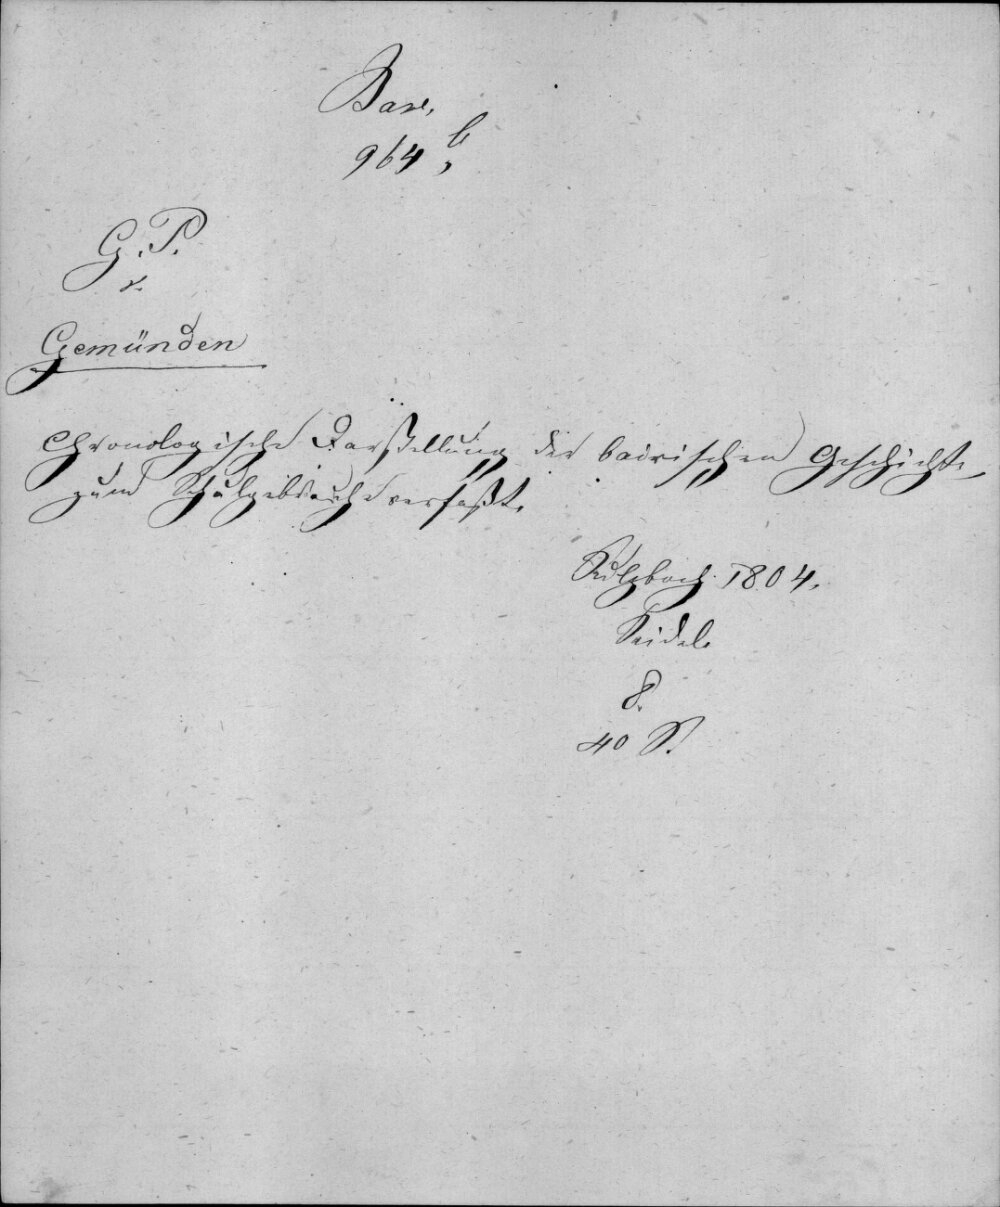 Bavar.
964 b,
G. P.
v.
Gemünden
Chronologische Darstellung der bairischen Geschichte,
zum Schulgebrauche verfaßt.
Sulzbach 1804.
Seidel.
8.
40 S.